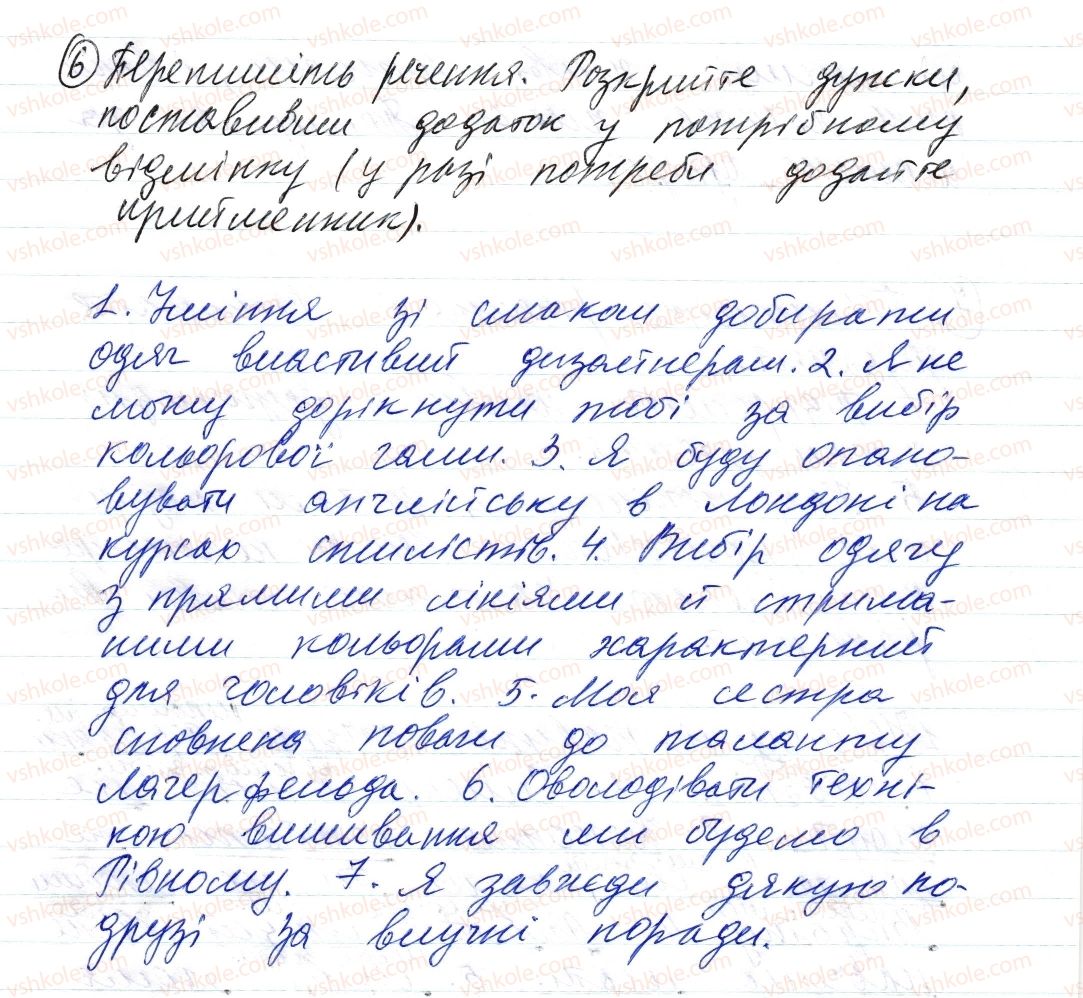 ⑥ Перепишіть речення. Розкрийте дужки,
поставивши додаток у потрібному
відмінку (у разі потреби додайте
прийменник).
1. Уміння зі смаком добирати
одяг властивий дизайнерам. 2. Я не
можу дорікнути тобі за вибір
кольорової гами. 3. Я буду опано-
вувати англійську в Лондоні на
курсах стилістів. 4. Вибір одягу
з прямими лініями й стрима-
ними кольорами характерний
для чоловіків. 5. Моя сестра
сповнена поваги до таланту
Лагерфельда. 6. Оволодівати техні-
кою вишивання ми будемо в
Рівному. 7. Я завжди дякую по-
друзі за влучні поради.